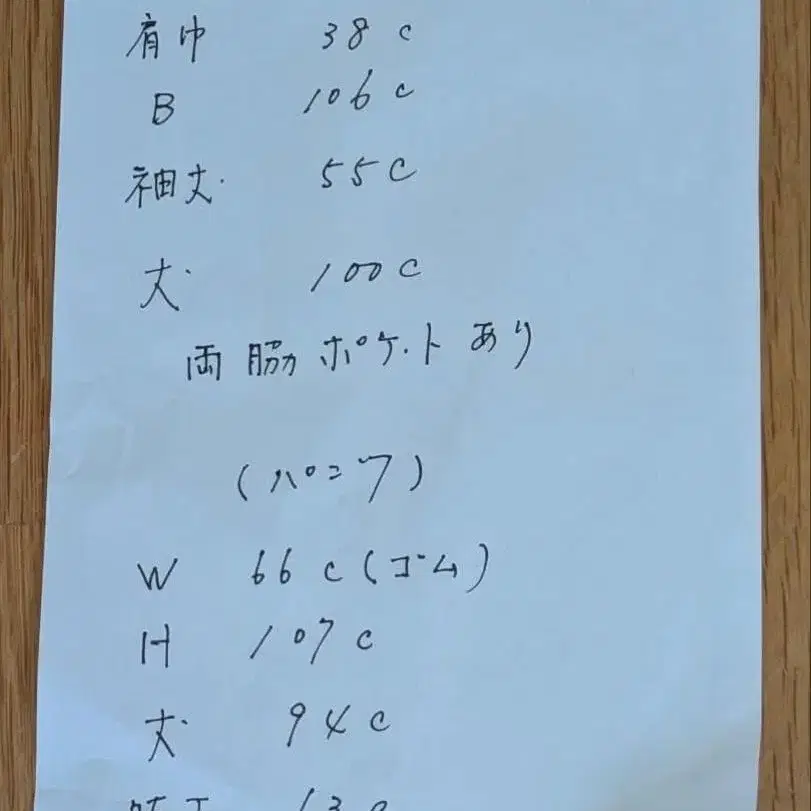 肩巾 38c
B 106c
袖丈 55c
丈 100c
両脇ポケットあり
(パンツ)
W 66c(ゴム)
H 107c
丈 94c
13c